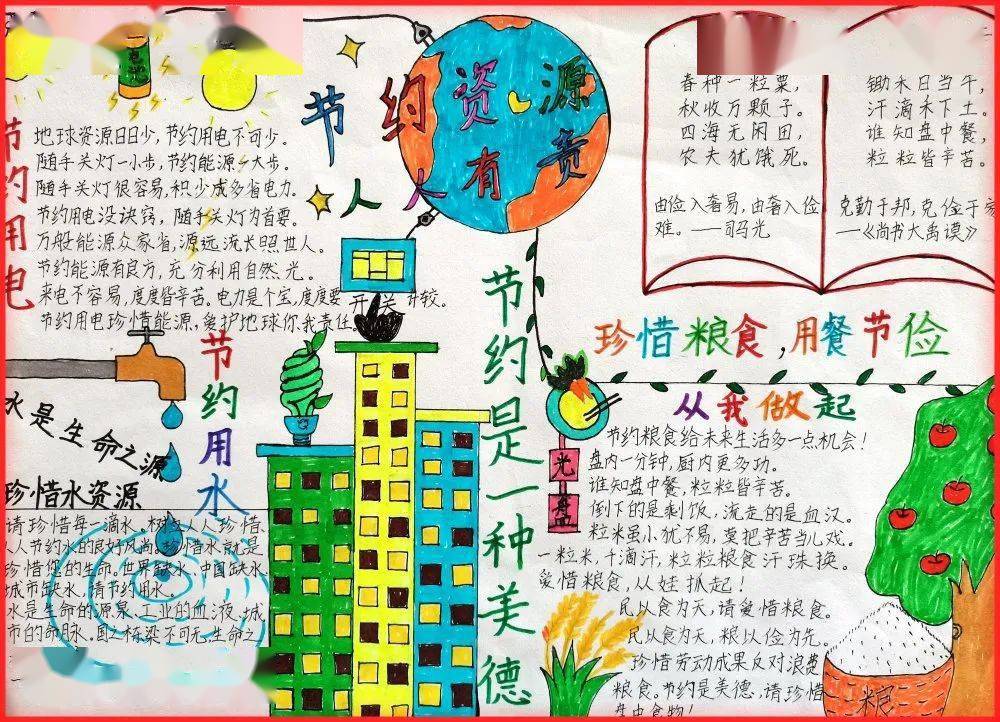 节约资源
人人有责
节约用电
地球资源日日少，节约用电不可少。
随手关灯一小步，节约能源一大步。
随手关灯很容易，积少成多省电力。
节约用电没诀窍，随手关灯为首要。
万般能源众家省，源远流长照世人。
节约能源有良方，充分利用自然光。
来电不容易，度度皆辛苦。电力是个宝，度度要开关计较。
节约用电珍惜能源，爱护地球你我责任。
春种一粒粟，
秋收万颗子。
四海无闲田，
农夫犹饿死。
由俭入奢易，由奢入俭
难。——司马光
锄禾日当午，
汗滴禾下土。
谁知盘中餐，
粒粒皆辛苦。
克勤于邦，克俭于家
—《尚书大禹谟》
节约用水
水是生命之源
珍惜水资源
请珍惜每一滴水。树立人人珍惜、
人人节约水的良好风尚。珍惜水就是
珍惜您的生命。世界缺水、中国缺水、
城市缺水，请节约用水。
水是生命的源泉、工业的血液、城
市的命脉。
节约是一种美德
珍惜粮食，用餐节俭
从我做起
光盘
节约粮食给未来生活多一点机会！
盘内一分钟，厨内更多功。
谁知盘中餐，粒粒皆辛苦。
倒下的是剩饭，流走的是血汗。
粒米虽小犹不易，莫把辛苦当儿戏。
一粒米，千滴汗，粒粒粮食汗珠换。
爱惜粮食，从娃抓起！
民以食为天，请爱惜粮食。
民以食为天，粮以俭为先。
珍惜劳动成果反对浪费
粮食。节约是美德，请珍惜
盘中食物！
粮